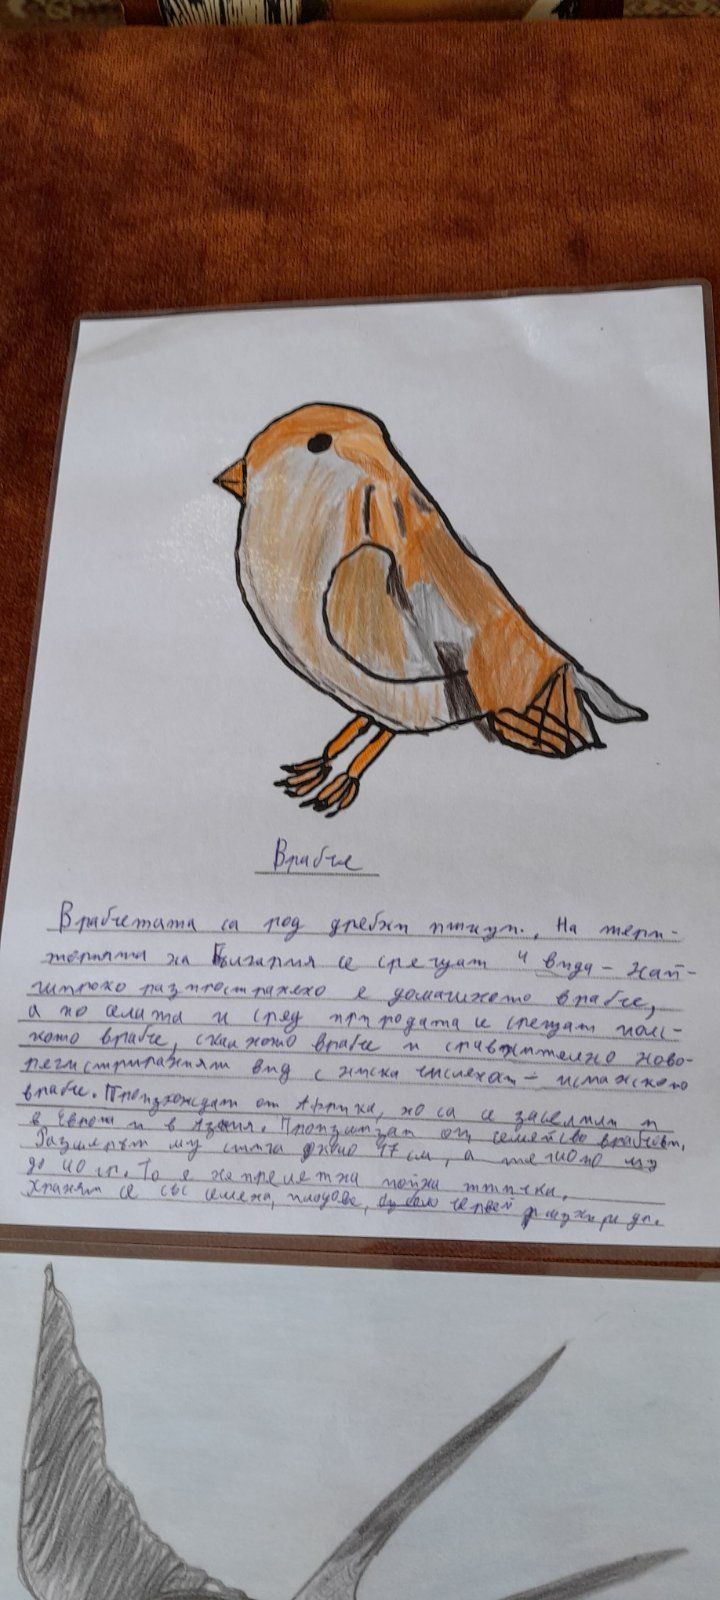 Врабче
Врабчетата са род дребни птици. На тери-
торията на България се срещат 4 вида - най-
широко разпространено е домашното врабче,
а по селата и сред природата се срещат полс-
кото врабче, скалното врабче и сравнително ново-
регистрираният вид с ниска численост - испанското
врабче. Произхождат от Африка, но са се заселили и
в Европа и в Азия. Произлизат от семейство врабчови,
Размерът му стига около 17 см, а теглото му
до 40 гр. То е непрелетна пойна птичка.
Хранят се със семена, плодове, червеи и др.